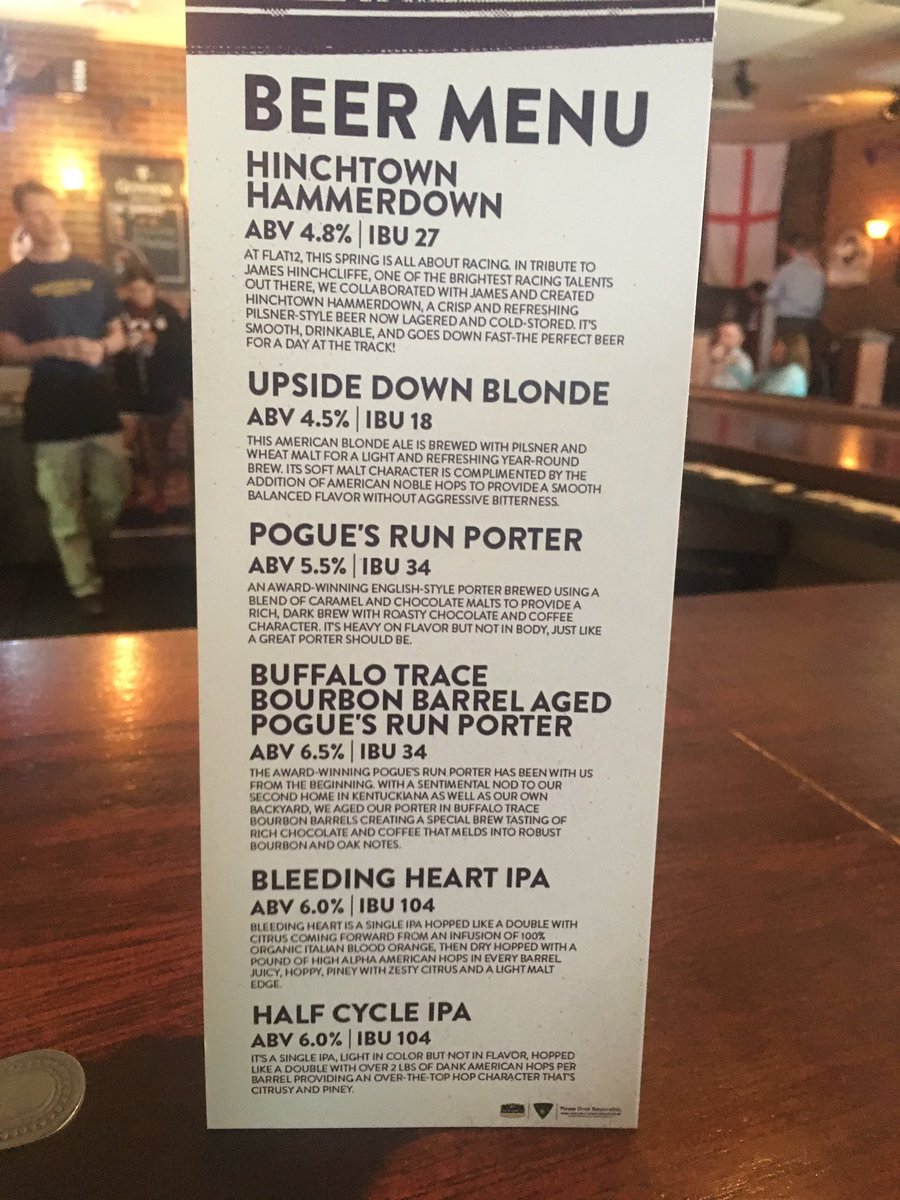 BEER MENU
HINCHTOWN
HAMMERDOWN
ABV 4.8% | IBU 27
AT FLAT12, THIS SPRING IS ALL ABOUT RACING. IN TRIBUTE TO
JAMES HINCHCLIFFE, ONE OF THE BRIGHTEST RACING TALENTS
OUT THERE, WE COLLABORATED WITH JAMES AND CREATED
HINCHTOWN HAMMERDOWN, A CRISP AND REFRESHING
PILSNER-STYLE BEER NOW LAGERED AND COLD-STORED. IT'S
SMOOTH, DRINKABLE, AND GOES DOWN FAST-THE PERFECT BEER
FOR A DAY AT THE TRACK!
UPSIDE DOWN BLONDE
ABV 4.5% | IBU 18
THIS AMERICAN BLONDE ALE IS BREWED WITH PILSNER AND
WHEAT MALT FOR A LIGHT AND REFRESHING YEAR-ROUND
BREW. ITS SOFT MALT CHARACTER IS COMPLIMENTED BY THE
ADDITION OF AMERICAN NOBLE HOPS TO PROVIDE A SMOOTH
BALANCED FLAVOR WITHOUT AGGRESSIVE BITTERNESS.
POGUE'S RUN PORTER
ABV 5.5% | IBU 34
AN AWARD-WINNING ENGLISH-STYLE PORTER BREWED USING A
BLEND OF CARAMEL AND CHOCOLATE MALTS TO PROVIDE A
RICH, DARK BREW WITH ROASTY CHOCOLATE AND COFFEE
CHARACTER. IT'S HEAVY ON FLAVOR BUT NOT IN BODY, JUST LIKE
A GREAT PORTER SHOULD BE.
BUFFALO TRACE
BOURBON BARREL AGED
POGUE'S RUN PORTER
ABV 6.5% | IBU 34
THE AWARD-WINNING POGUE'S RUN PORTER HAS BEEN WITH US
FROM THE BEGINNING. WITH A SENTIMENTAL NOD TO OUR
SECOND HOME IN KENTUCKIANA AS WELL AS OUR OWN
BACKYARD, WE AGED OUR PORTER IN BUFFALO TRACE
BOURBON BARRELS CREATING A SPECIAL BREW TASTING OF
RICH CHOCOLATE AND COFFEE THAT MELDS INTO ROBUST
BOURBON AND OAK NOTES.
BLEEDING HEART IPA
ABV 6.0% | IBU 104
BLEEDING HEART IS A SINGLE IPA HOPPED LIKE A DOUBLE WITH
CITRUS COMING FORWARD FROM AN INFUSION OF 100%
ORGANIC ITALIAN BLOOD ORANGE, THEN DRY HOPPED WITH A
POUND OF HIGH ALPHA AMERICAN HOPS IN EVERY BARREL
JUICY, HOPPY, PINEY WITH ZESTY CITRUS AND A LIGHT MALT
EDGE.
HALF CYCLE IPA
ABV 6.0% | IBU 104
IT'S A SINGLE IPA, LIGHT IN COLOR BUT NOT IN FLAVOR, HOPPED
LIKE A DOUBLE WITH OVER 2 LBS OF DANK AMERICAN HOPS PER
BARREL PROVIDING AN OVER-THE-TOP HOP CHARACTER THAT'S
CITRUSY AND PINEY.
Please Drink Responsibly
GUINNESS